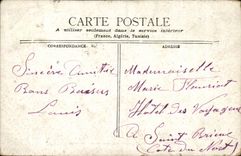 CARTE POSTALE
A utiliser seulement dans le service intérieur
(France, Algérie, Tunisie)
CORRESPONDANCE
ADRESSE
Sincère Amitié
Bons Baisers
Louis
Mademoiselle
Marie
Hôtel des Voyageurs
A Saint Brieuc
Côte du Nord